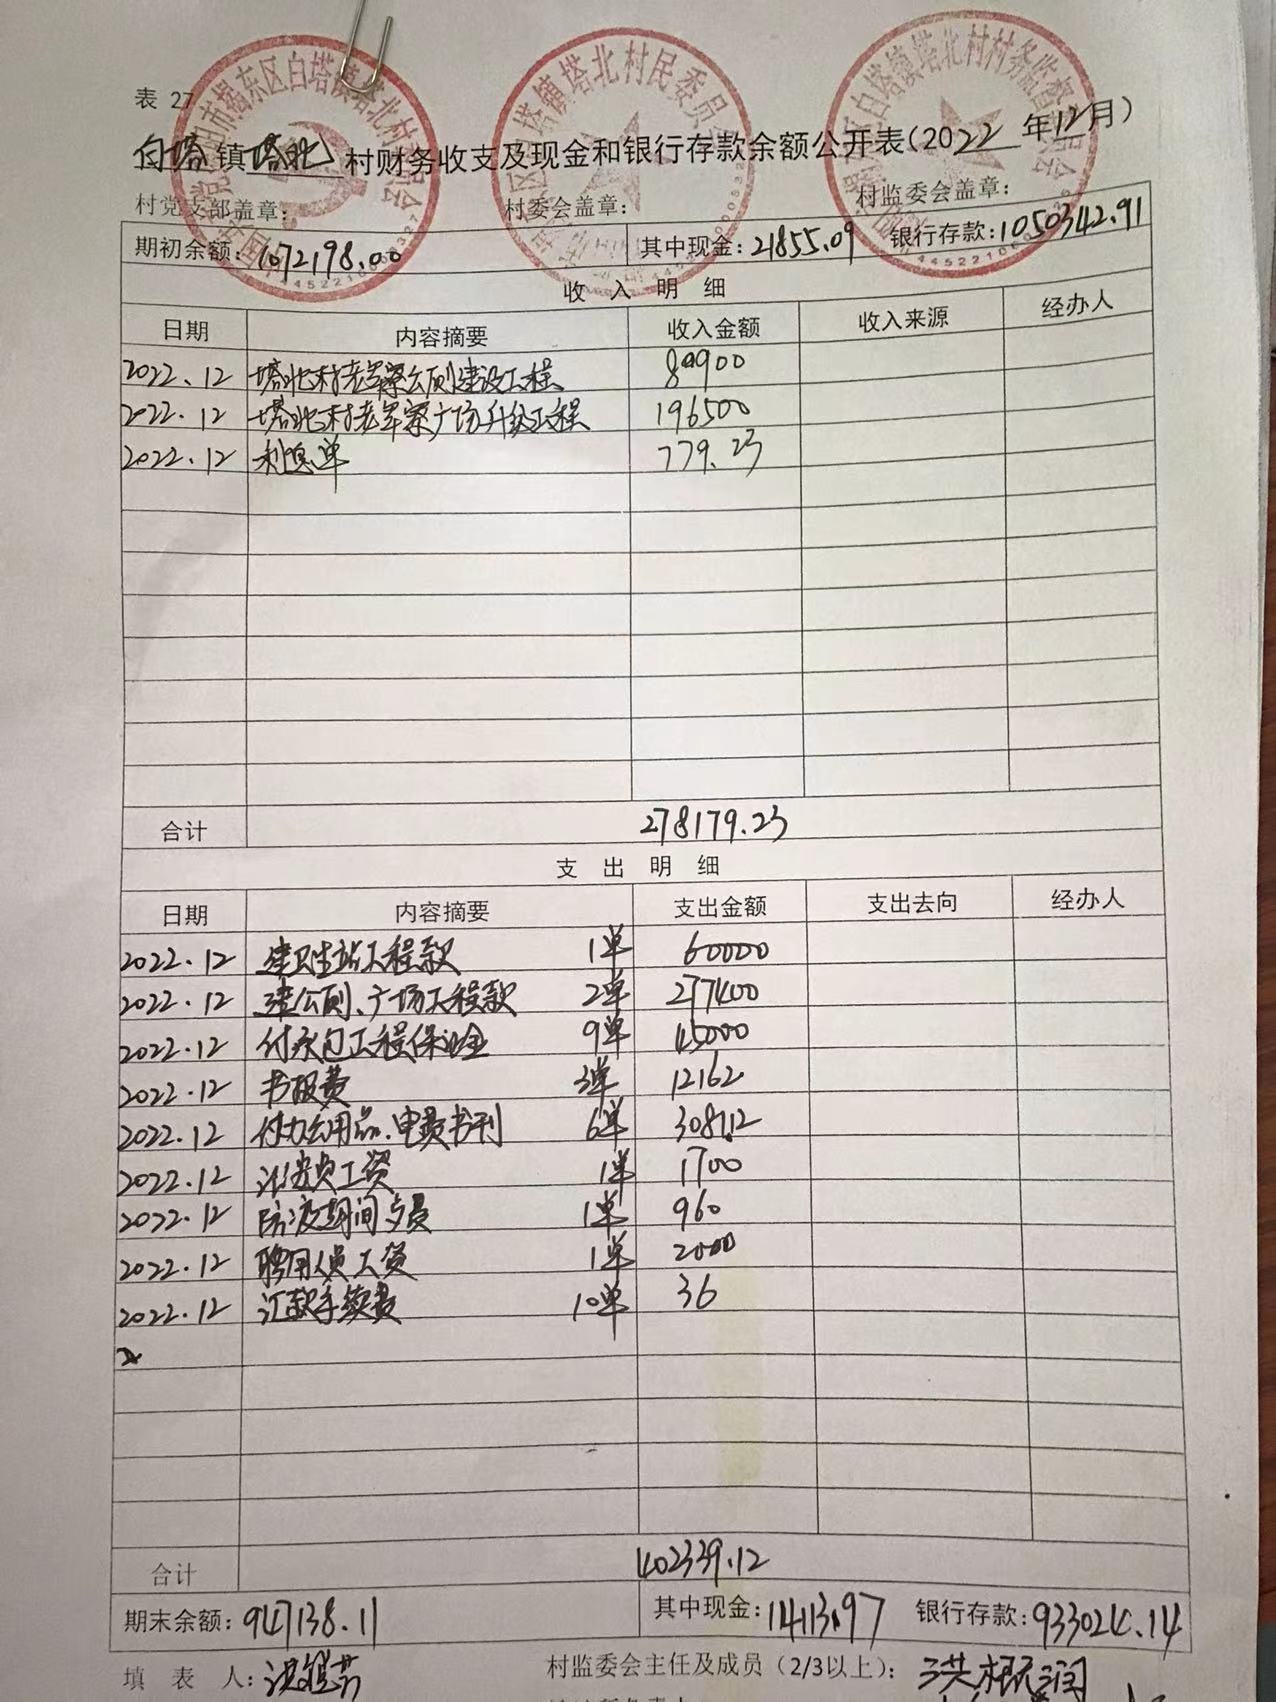 表 27
白塔镇塔北村财务收支及现金和银行存款余额公开表(2022年12月)
村党支部盖章: 村委会盖章: 村监委会盖章:
期初余额: 1072198.00 其中现金: 21855.09 银行存款: 1050342.91
收 入 明 细
日期 内容摘要 收入金额 收入来源 经办人
2022.12 塔北村老军寮公厕建设工程 80900
2022.12 塔北村老军寮广场升级工程 196500
2022.12 利息单 779.23
合计 278179.23
支 出 明 细
日期 内容摘要 支出金额 支出去向 经办人
2022.12 建卫生站工程款 1单 60000
2022.12 建公厕、广场工程款 2单 277400
2022.12 付承包工程保证金 9单 45000
2022.12 书报费 3单 12162
2022.12 付办公用品、电费书刊 6单 3081.12
2022.12 治安员工资 1单 1700
2022.12 防疫期间 1单 960
2022.12 聘用人员工资 1单 2000
2022.12 汇款手续费 10单 36
合计 402339.12
期末余额: 947138.11 其中现金: 14113.97 银行存款: 933024.14
填 表 人: 村监委会主任及成员(2/3以上): 洪根润